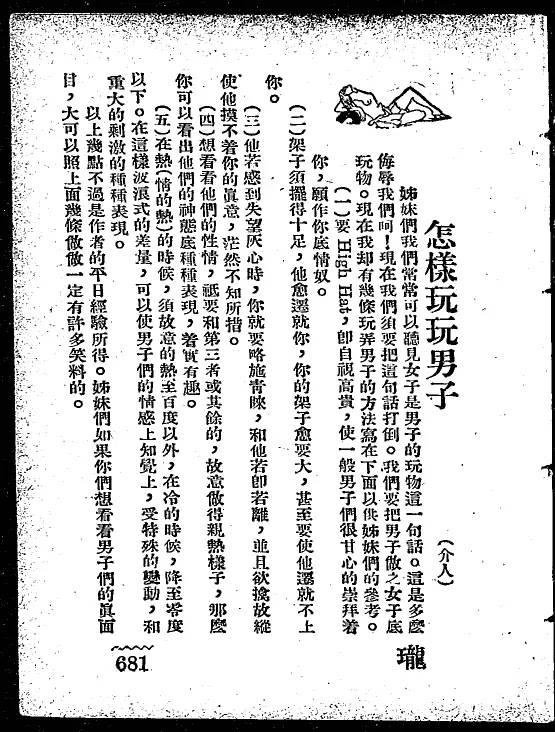 怎樣玩玩男子
（介人）
姊妹們我們常常可以聽見女子是男子的玩物這一句話。這是多麼
侮辱我們呵！現在我們須要把這句話打倒。我們要把男子做之女子底
玩物。現在我却有幾條玩弄男子的方法寫在下面以供姊妹們的參考。
（一）要High Hat，卽自視高貴，使一般男子們很甘心的崇拜着
你，願作你底情奴。
（二）架子須擺得十足，他愈遷就你，你的架子愈要大，甚至要使他遷就不上
你。
（三）他若感到失望灰心時，你就要略施靑睞，和他若卽若離，並且欲擒故縱
使他摸不着你的眞意，茫然不知所措。
（四）想看看他們的性情，祇要和第三者或其餘的，故意做得親熱樣子，那麼
你可以看出他們的神態底種種表現，着實有趣。
（五）在熱（情的熱）的時候，須故意的熱至百度以外，在冷的時候，降至零度
以下。在這樣波浪式的差量，可以使男子們的情感上知覺上，受特殊的變動，和
重大的刺激的種種表現。
以上幾點不過是作者的平日經驗所得。姊妹們如果你們想看看男子們的眞面
目，大可以照上面幾條做做一定有許多笑料的。
瓏
681